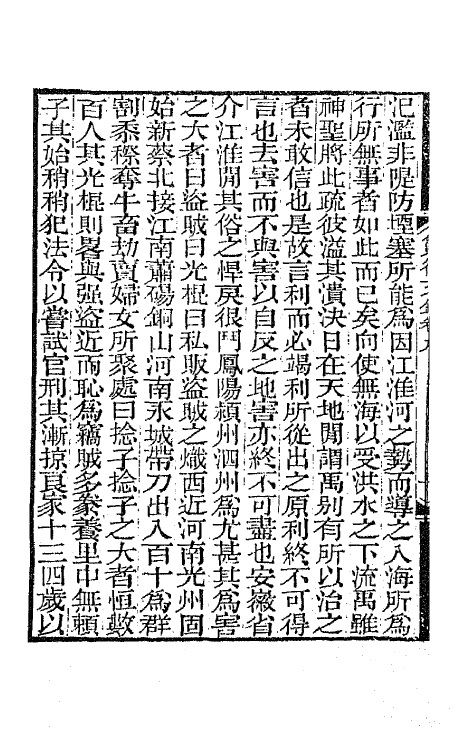 氾濫非隄防堙塞所能爲因江淮河之勢而導之入海所爲
行所無事者如此而已矣向使無海以受洪水之下流禹雖
神聖將此疏彼溢其潰決日在天地閒謂禹別有所以治之
者未敢信也是故言利而必竭利所從出之原利終不可得
言也去害而不與害以自反之地害亦終不可盡也安徽省
介江淮閒其俗之悍戾很鬥鳳陽潁州泗州爲尤甚其爲害
之大者曰盜賊曰光棍曰私販盜賊之熾西近河南光州固
始新蔡北接江南蕭碭銅山河南永城帶刀出入百十爲羣
割黍穄奪牛畜劫賣婦女所聚處曰捻子捻子之大者恒數
百人其光棍則畧與强盜近而恥爲竊賊多豢養里中無頼
子其始稍稍犯法令以嘗試官刑其漸掠良家十三四歲以